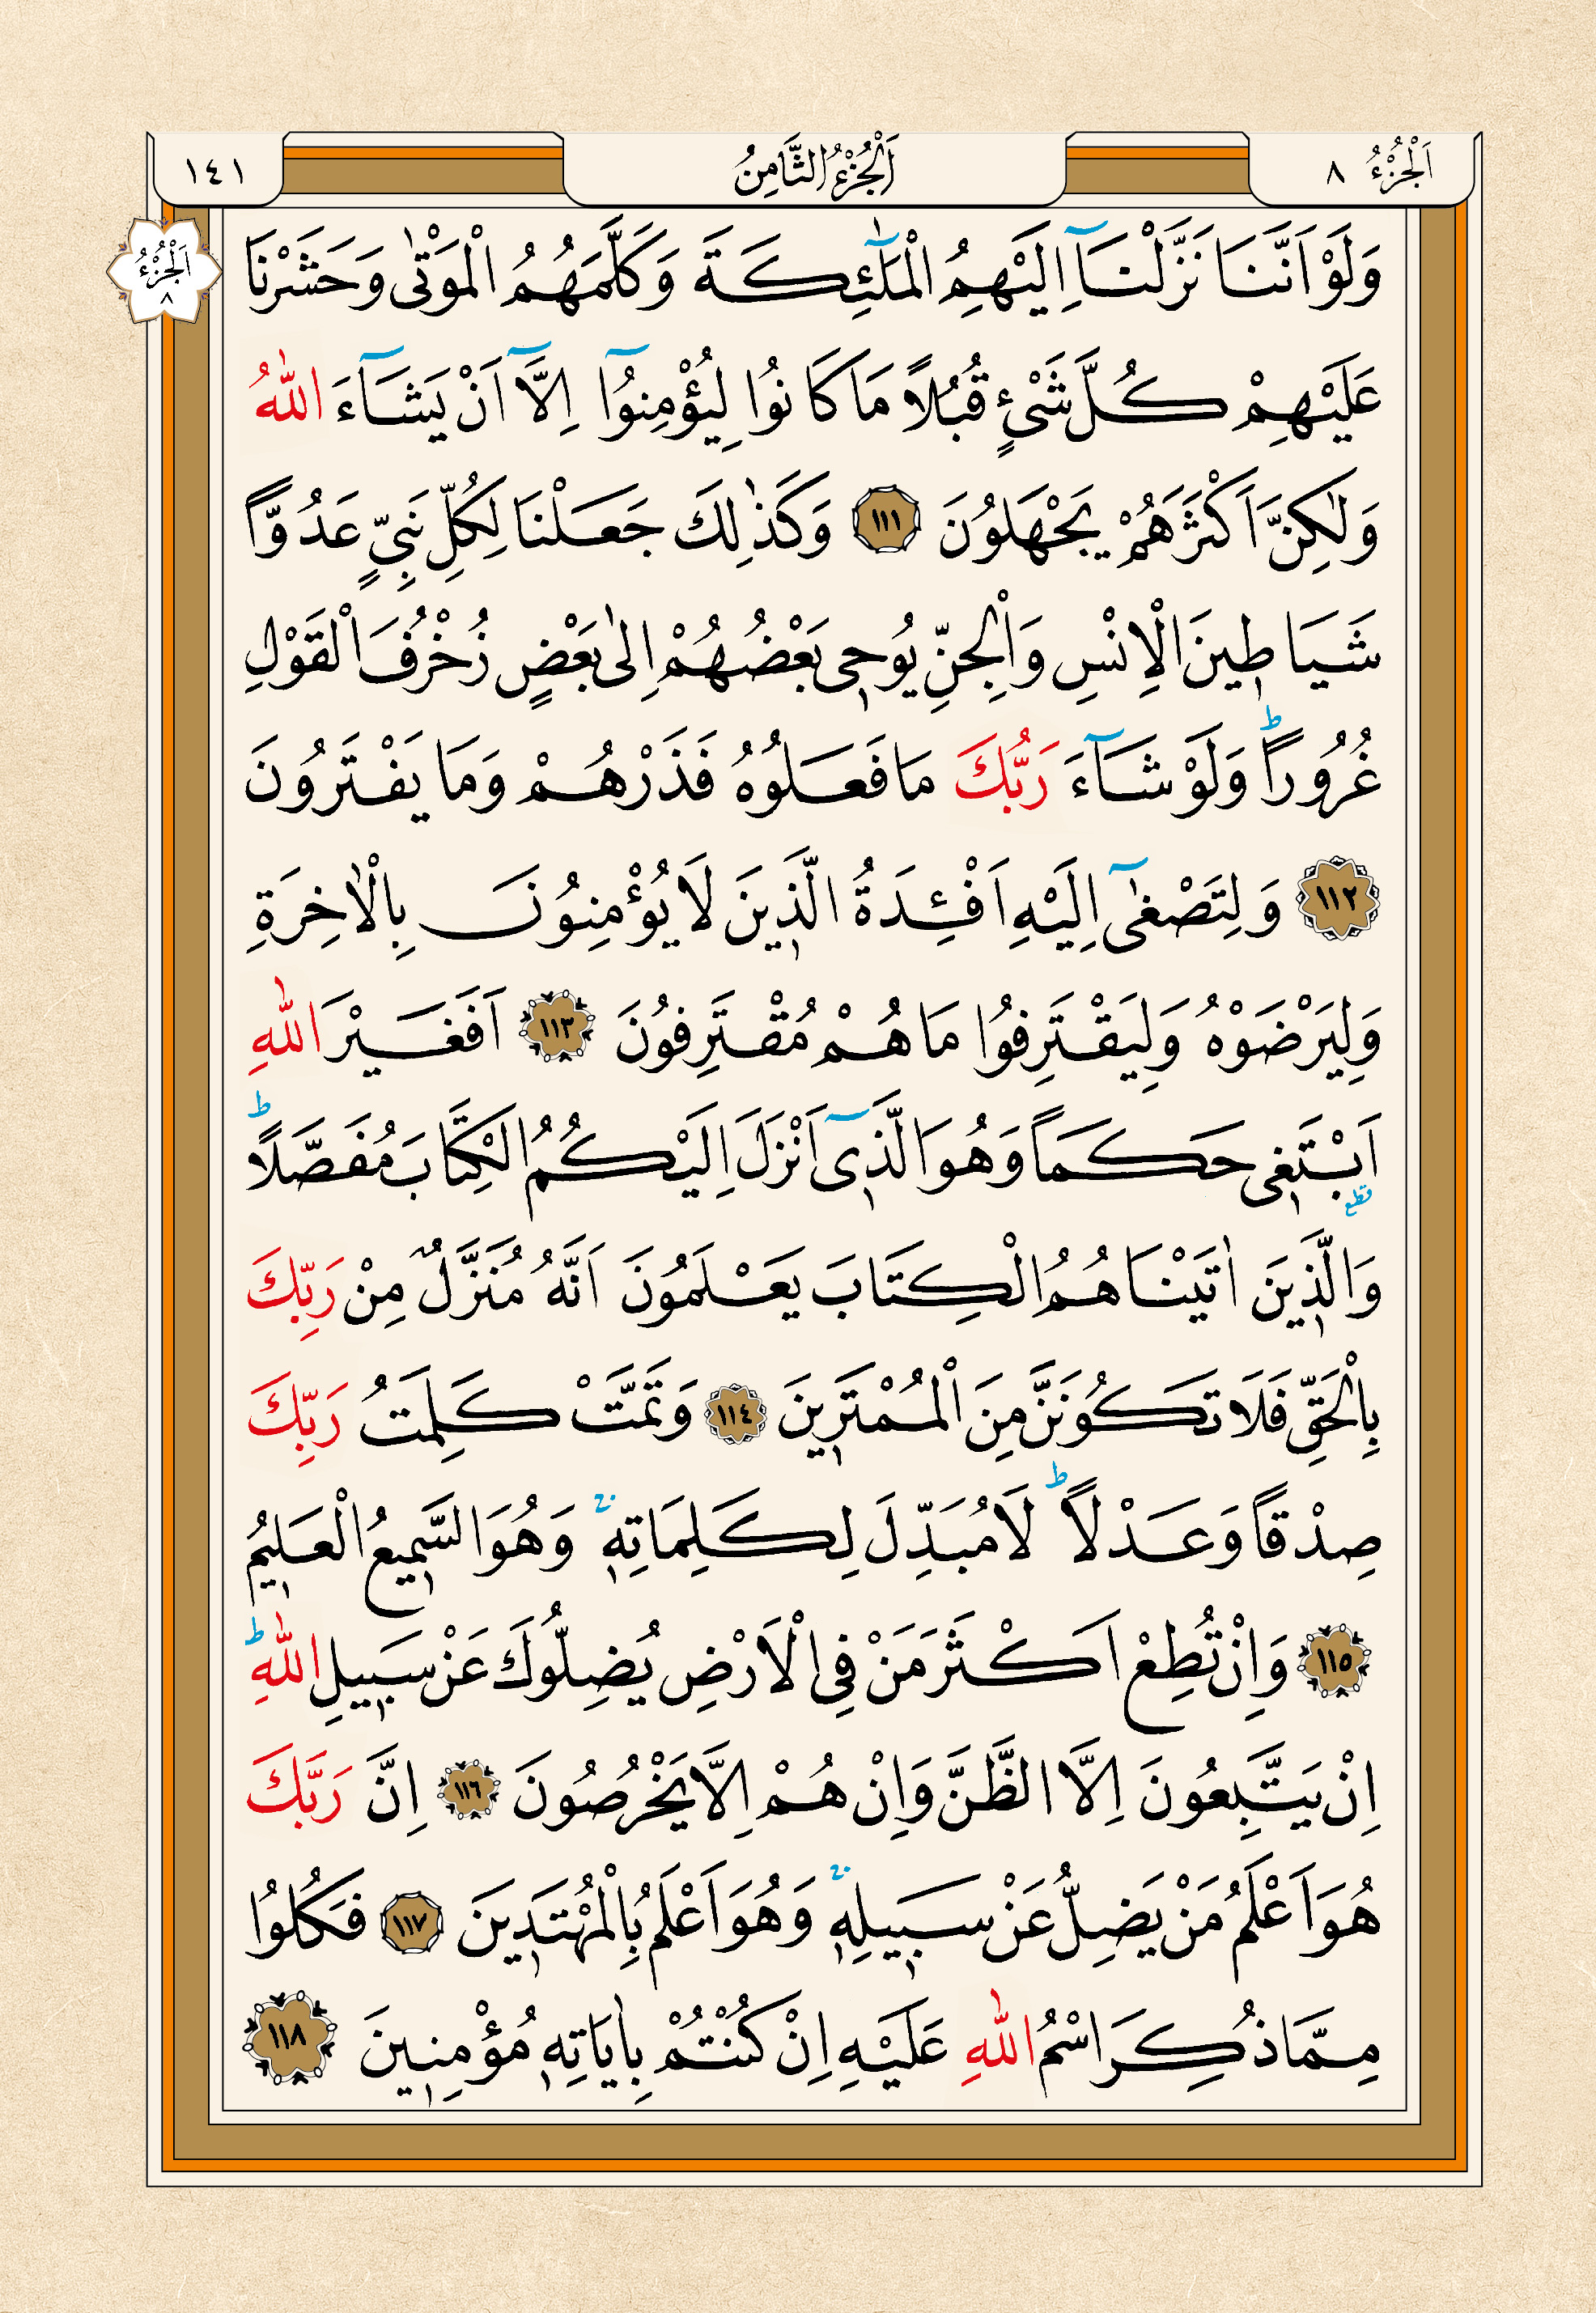 اَلْجُزْءُ ٨
اَلْجُزْءُ الثَّامِنُ
١٤١
اَلْجُزْءُ
٨
وَلَوْ اَنَّنَا نَزَّلْنَٓا اِلَيْهِمُ الْمَلٰٓئِكَةَ وَكَلَّمَهُمُ الْمَوْتٰى وَحَشَرْنَا
عَلَيْهِمْ كُلَّ شَيْءٍ قُبُلًا مَا كَانُوا لِيُؤْمِنُٓوا اِلَّٓا اَنْ يَشَٓاءَ اللّٰهُ
وَلٰكِنَّ اَكْثَرَهُمْ يَجْهَلُونَ ١١١ وَكَذٰلِكَ جَعَلْنَا لِكُلِّ نَبِيٍّ عَدُوًّا
شَيَاطٖينَ الْاِنْسِ وَالْجِنِّ يُوحٖى بَعْضُهُمْ اِلٰى بَعْضٍ زُخْرُفَ الْقَوْلِ
غُرُورًاؕ وَلَوْ شَٓاءَ رَبُّكَ مَا فَعَلُوهُ فَذَرْهُمْ وَمَا يَفْتَرُونَ
١١٢ وَلِتَصْغٰٓى اِلَيْهِ اَفْـِٔدَةُ الَّذٖينَ لَا يُؤْمِنُونَ بِالْاٰخِرَةِ
وَلِيَرْضَوْهُ وَلِيَقْتَرِفُوا مَا هُمْ مُقْتَرِفُونَ ١١٣ اَفَغَيْرَ اللّٰهِ
اَبْتَغٖى حَكَمًا وَهُوَ الَّذٖٓى اَنْزَلَ اِلَيْكُمُ الْكِتَابَ مُفَصَّلًاؕ
قطع
وَالَّذٖينَ اٰتَيْنَاهُمُ الْكِتَابَ يَعْلَمُونَ اَنَّهُ مُنَزَّلٌ مِنْ رَبِّكَ
بِالْحَقِّ فَلَا تَكُونَنَّ مِنَ الْمُمْتَرٖينَ ١١٤ وَتَمَّتْ كَلِمَتُ رَبِّكَ
صِدْقًا وَعَدْلًاؕ لَا مُبَدِّلَ لِكَلِمَاتِهٖۚ وَهُوَ السَّمٖيعُ الْعَلٖيمُ
١١٥ وَاِنْ تُطِعْ اَكْثَرَ مَنْ فِى الْاَرْضِ يُضِلُّوكَ عَنْ سَبٖيلِ اللّٰهِؕ
اِنْ يَتَّبِعُونَ اِلَّا الظَّنَّ وَاِنْ هُمْ اِلَّا يَخْرُصُونَ ١١٦ اِنَّ رَبَّكَ
هُوَ اَعْلَمُ مَنْ يَضِلُّ عَنْ سَبٖيلِهٖۚ وَهُوَ اَعْلَمُ بِالْمُهْتَدٖينَ ١١٧ فَكُلُوا
مِمَّا ذُكِرَ اسْمُ اللّٰهِ عَلَيْهِ اِنْ كُنْتُمْ بِاٰيَاتِهٖ مُؤْمِنٖينَ ١١٨